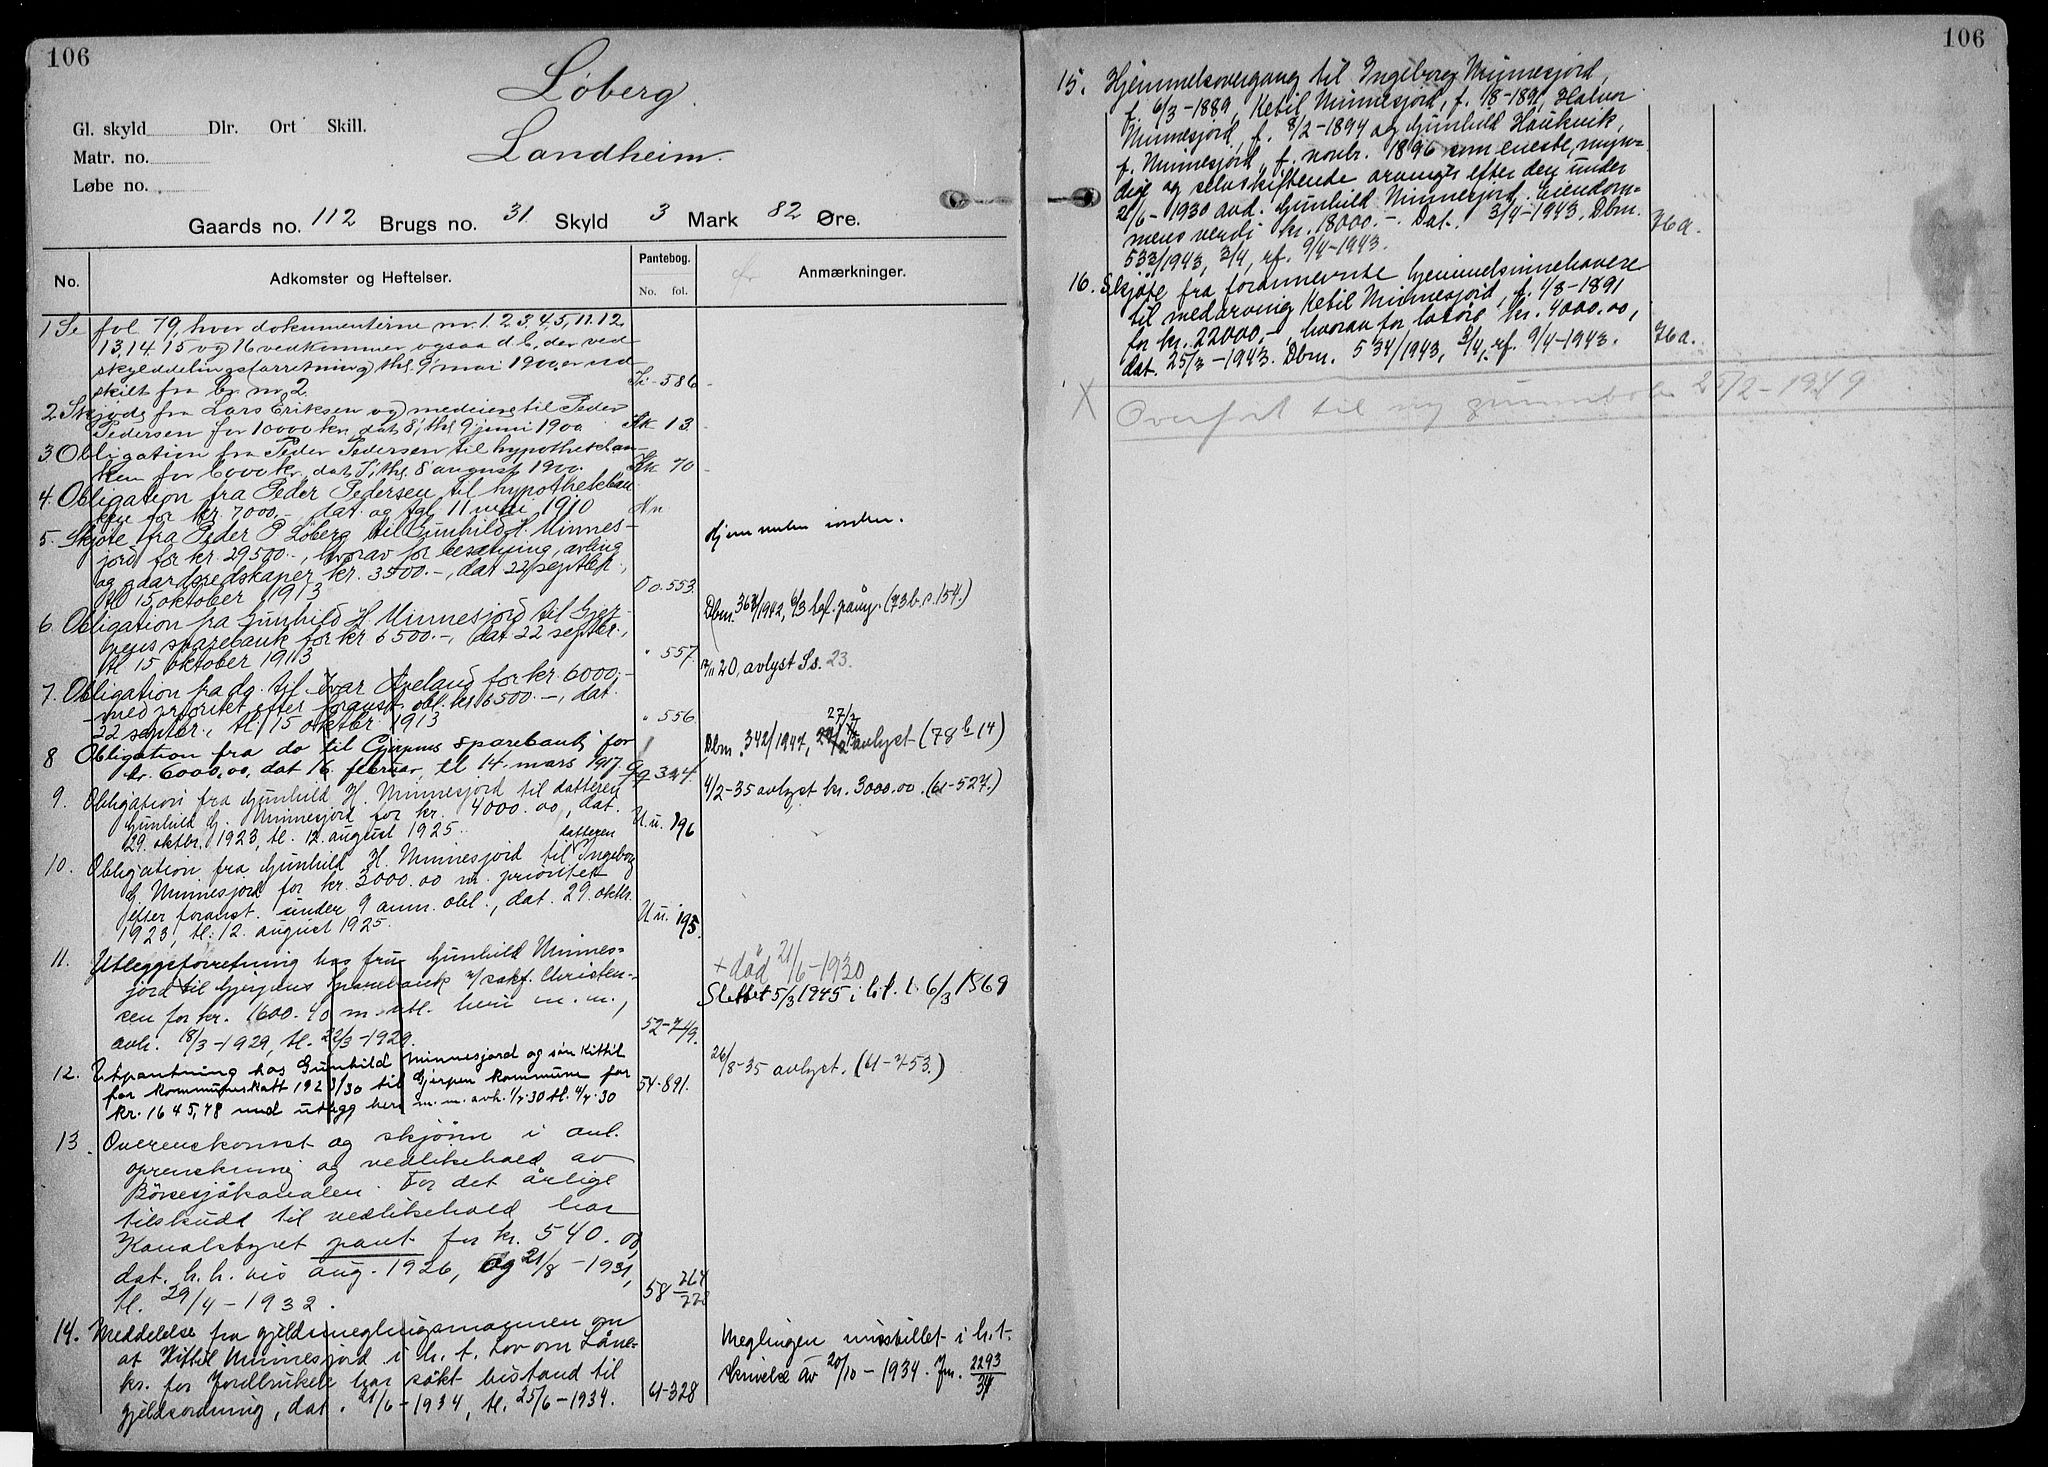 106
Løberg.
Landheim.
Gl. skyld Dlr. Ort Skill.
Matr. no.
Løbe no.
Gaards no. 112 Brugs no. 31 Skyld 3 Mark 82 Øre.
No. Adkomster og Heftelser. Pantebog. No. fol. Anmærkninger.
1 Se fol. 79, hvor dokumenterne nr. 1. 2. 3. 4. 5, 11. 12.
13. 14. 15 og 16 vedkommer ogsaa d. b., der ved
skylddelingsforretning thl. 9 mai 1900 er ud
skilt fra br. nr. 2. Ii - 586
2. Skjøde fra Lars Eriksen og medeiere til Peder
Pedersen for 10000 kr. dat. 8, thl. 9 juni 1900 Kk 13
3. Obligation fra Peder Pedersen til hypothekban
ken for 6000 kr, dat. thl. 8 august 1900. Kk 70
4. Obligation fra Peder Pedersen til hypothekban
ken for kr. 7000.- dat. og tgl. 11 1910 Nn
5. Skjøte fra Peder P Løberg til Gunhild H. Minnes-
jord for kr. 29500.-, hvorav for besætning, avling
og gaardsredskaper kr. 3500.-, dat 22 septbr.,
tl. 15 oktober 1913 Oo. 553.
6. Obligation fra Gunhild H. Minnesjord til Gjer-
pens sparebank for kr 6500.-, dat 22 septbr., Dbm. 1942, 6/3 (73 b. s. 154.)
tl. 15 oktober 1913 " 557. 20, avlyst Ss. 23.
7. Obligation fra do. til Ivar Aveland for kr 6000,-
med prioritet efter foranst. obl. kr 6500.-, dat.
22 septbr., tl. 15 oktbr 1913 " 556
8 Obligation fra do til Gjerpens sparebank for Dbm. 342/1947, 27/2 avlyst (78 b 14)
kr. 6000,00, dat 16. februar, tl 14. mars 1917. Qq 324. 4/2-35 avlyst kr. 3000.00. (61-527.)
9. Obligation fra Gunhild H. Minnesjord til datteren
Gunhild G. Minnesjord for kr. 4000.00, dat.
29. oktbr. 1923, tl. 12. august 1925. U.u. 196
10. Obligation fra Gunhild H. Minnesjord til datteren Ingeborg
G. Minnesjord for kr. 3000.00 m. prioritet
efter foranst. under 9 anm. obl., dat. 29. oktbr.
1923, tl. 12. august 1925. U u. 195.
11. Utleggsforretning hos fru Gunhild Minnes= + død 21/6-1930
jord til Gjerpens Sparebank v/ sakf. Christen- Slettet 5/3 1945 i h.t. l. 6/3 1869
sen for kr. 1600.40 m. utl. heri m. m.,
avh. 18/3-1929, tl. 22/3-1929. 52-749.
12. Utpantning hos Gunhild Minnesjord og søn Kittil 26/8-35 avlyst. (61-753.)
for kommuneskatt 1929/30 til Gjerpen kommune for 54-891.
kr. 1645,78 med utlegg heri m. m. avh. 1/7.30 tl. 4/7.30
13. Overenskomst og skjønn i anl.
oprenskning og vedlikehold av
Børsesjøkanalen. For det årlige
tilskudd til vedlikehold har
Kanalstyret pant for kr. 540.00,
dat. h. h. vis aug. 1926, og 21/8-1931,
tl. 29/4-1932. 58-264/272
14. Meddelelse fra gjeldsmeglingsmannen om Meglingen innstillet i h.t.
at Kittil Minnesjord i h. t. Lov om Låne- skrivelse av 20/10-1934. Jnr. 2293/34
kr. for Jordbrukere har søkt bistand til
gjeldsordning, dat. 21/6-1934, tl. 25/6-1934. 61-328
106
15. Hjemmelsovergang til Ingeborg Minnesjord,
f. 6/3-1889, Ketil Minnesjord, f. 1/8-1891, Halvor
Minnesjord, f. 8/2-1894 og Gunhild Haukvik,
f. Minnesjord, f. novbr. 1896 som eneste, myn=
dige og selvskiftende arvinger efter den under
21/6-1930 avd. Gunhild Minnesjord. Eiendom=
mens verdi kr. 18000.-. Dat. 3/4-1943, Dbm. 76a.
533/1943, 3/4, rf. 9/4-1943.
16. Skjøte fra forannevnte hjemmelsinnehavere
til medarving Ketil Minnesjord, f. 1/8-1891
for kr. 22000,-, hvorav for løsøre kr. 4000.00,
dat. 25/3-1943. Dbm. 534/1943, 3/4, rf. 9/4-1943. 76a.
X Overført til ny grunnbok 25/2-1949